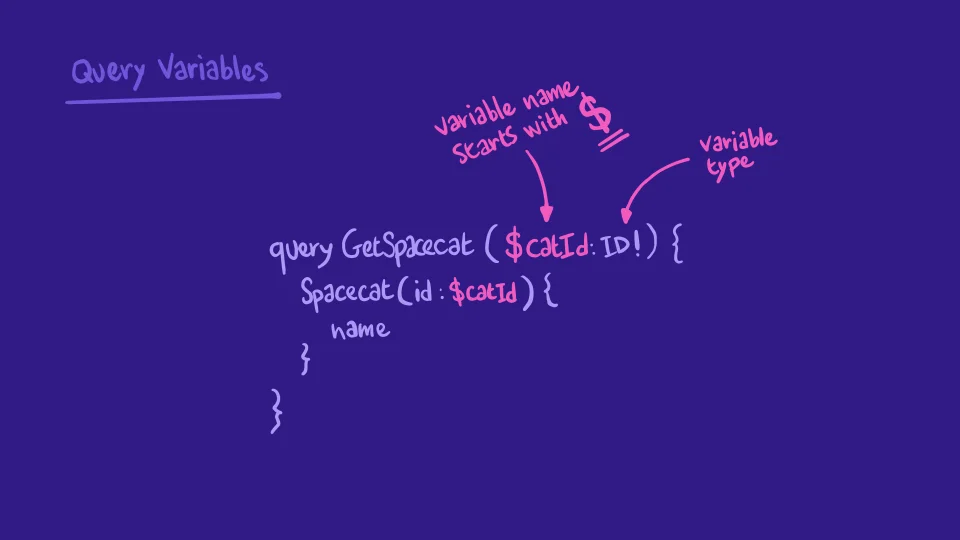 Query Variables
variable name
starts with $
variable
type
query GetSpacecat ($catId: ID!) {
Spacecat(id: $catId) {
name
}
}